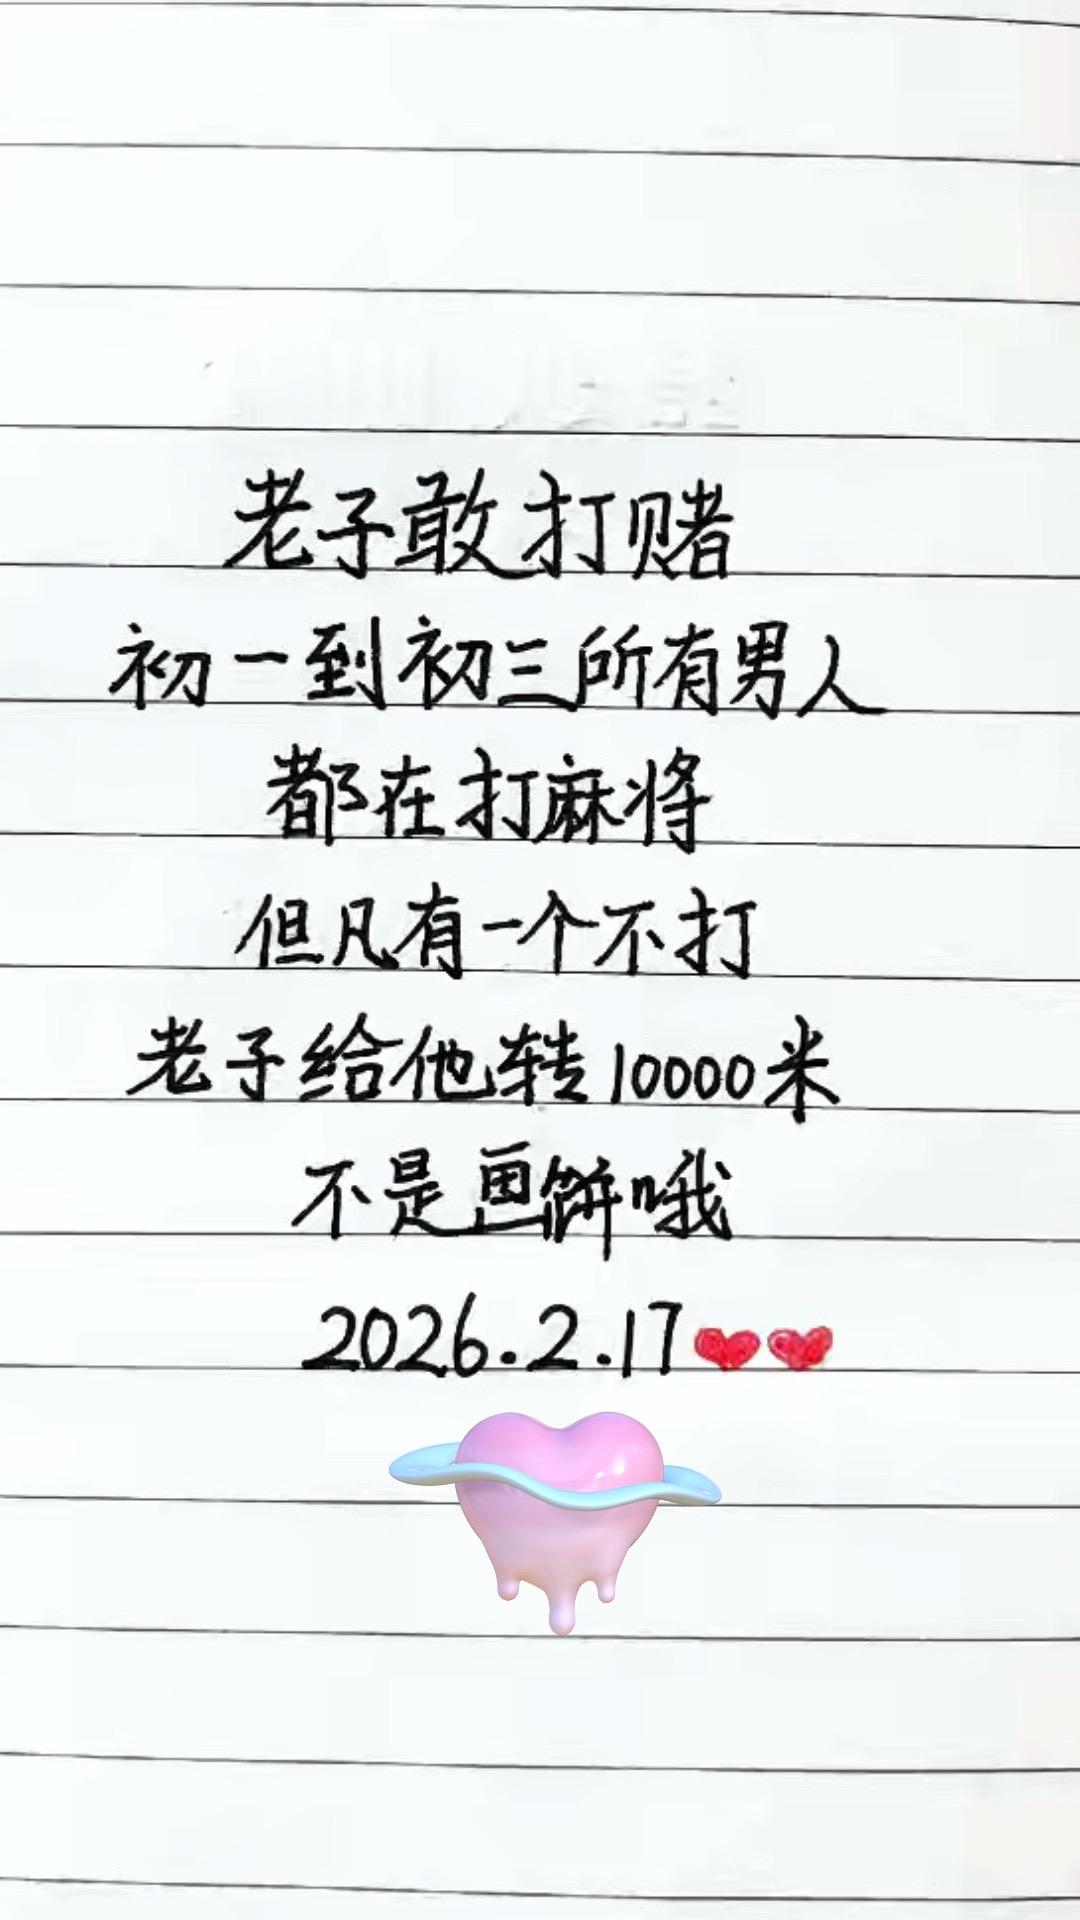 老子敢打赌
初一到初三所有男人
都在打麻将
但凡有一个不打
老子给他转10000米
不是画饼哦
2026.2.17